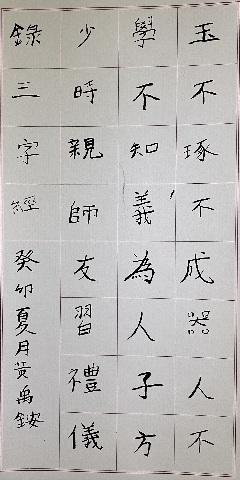 玉不琢不成器人不
學不知義為人子方
少時親師友習禮儀
錄三字經癸卯夏月黃禹銨